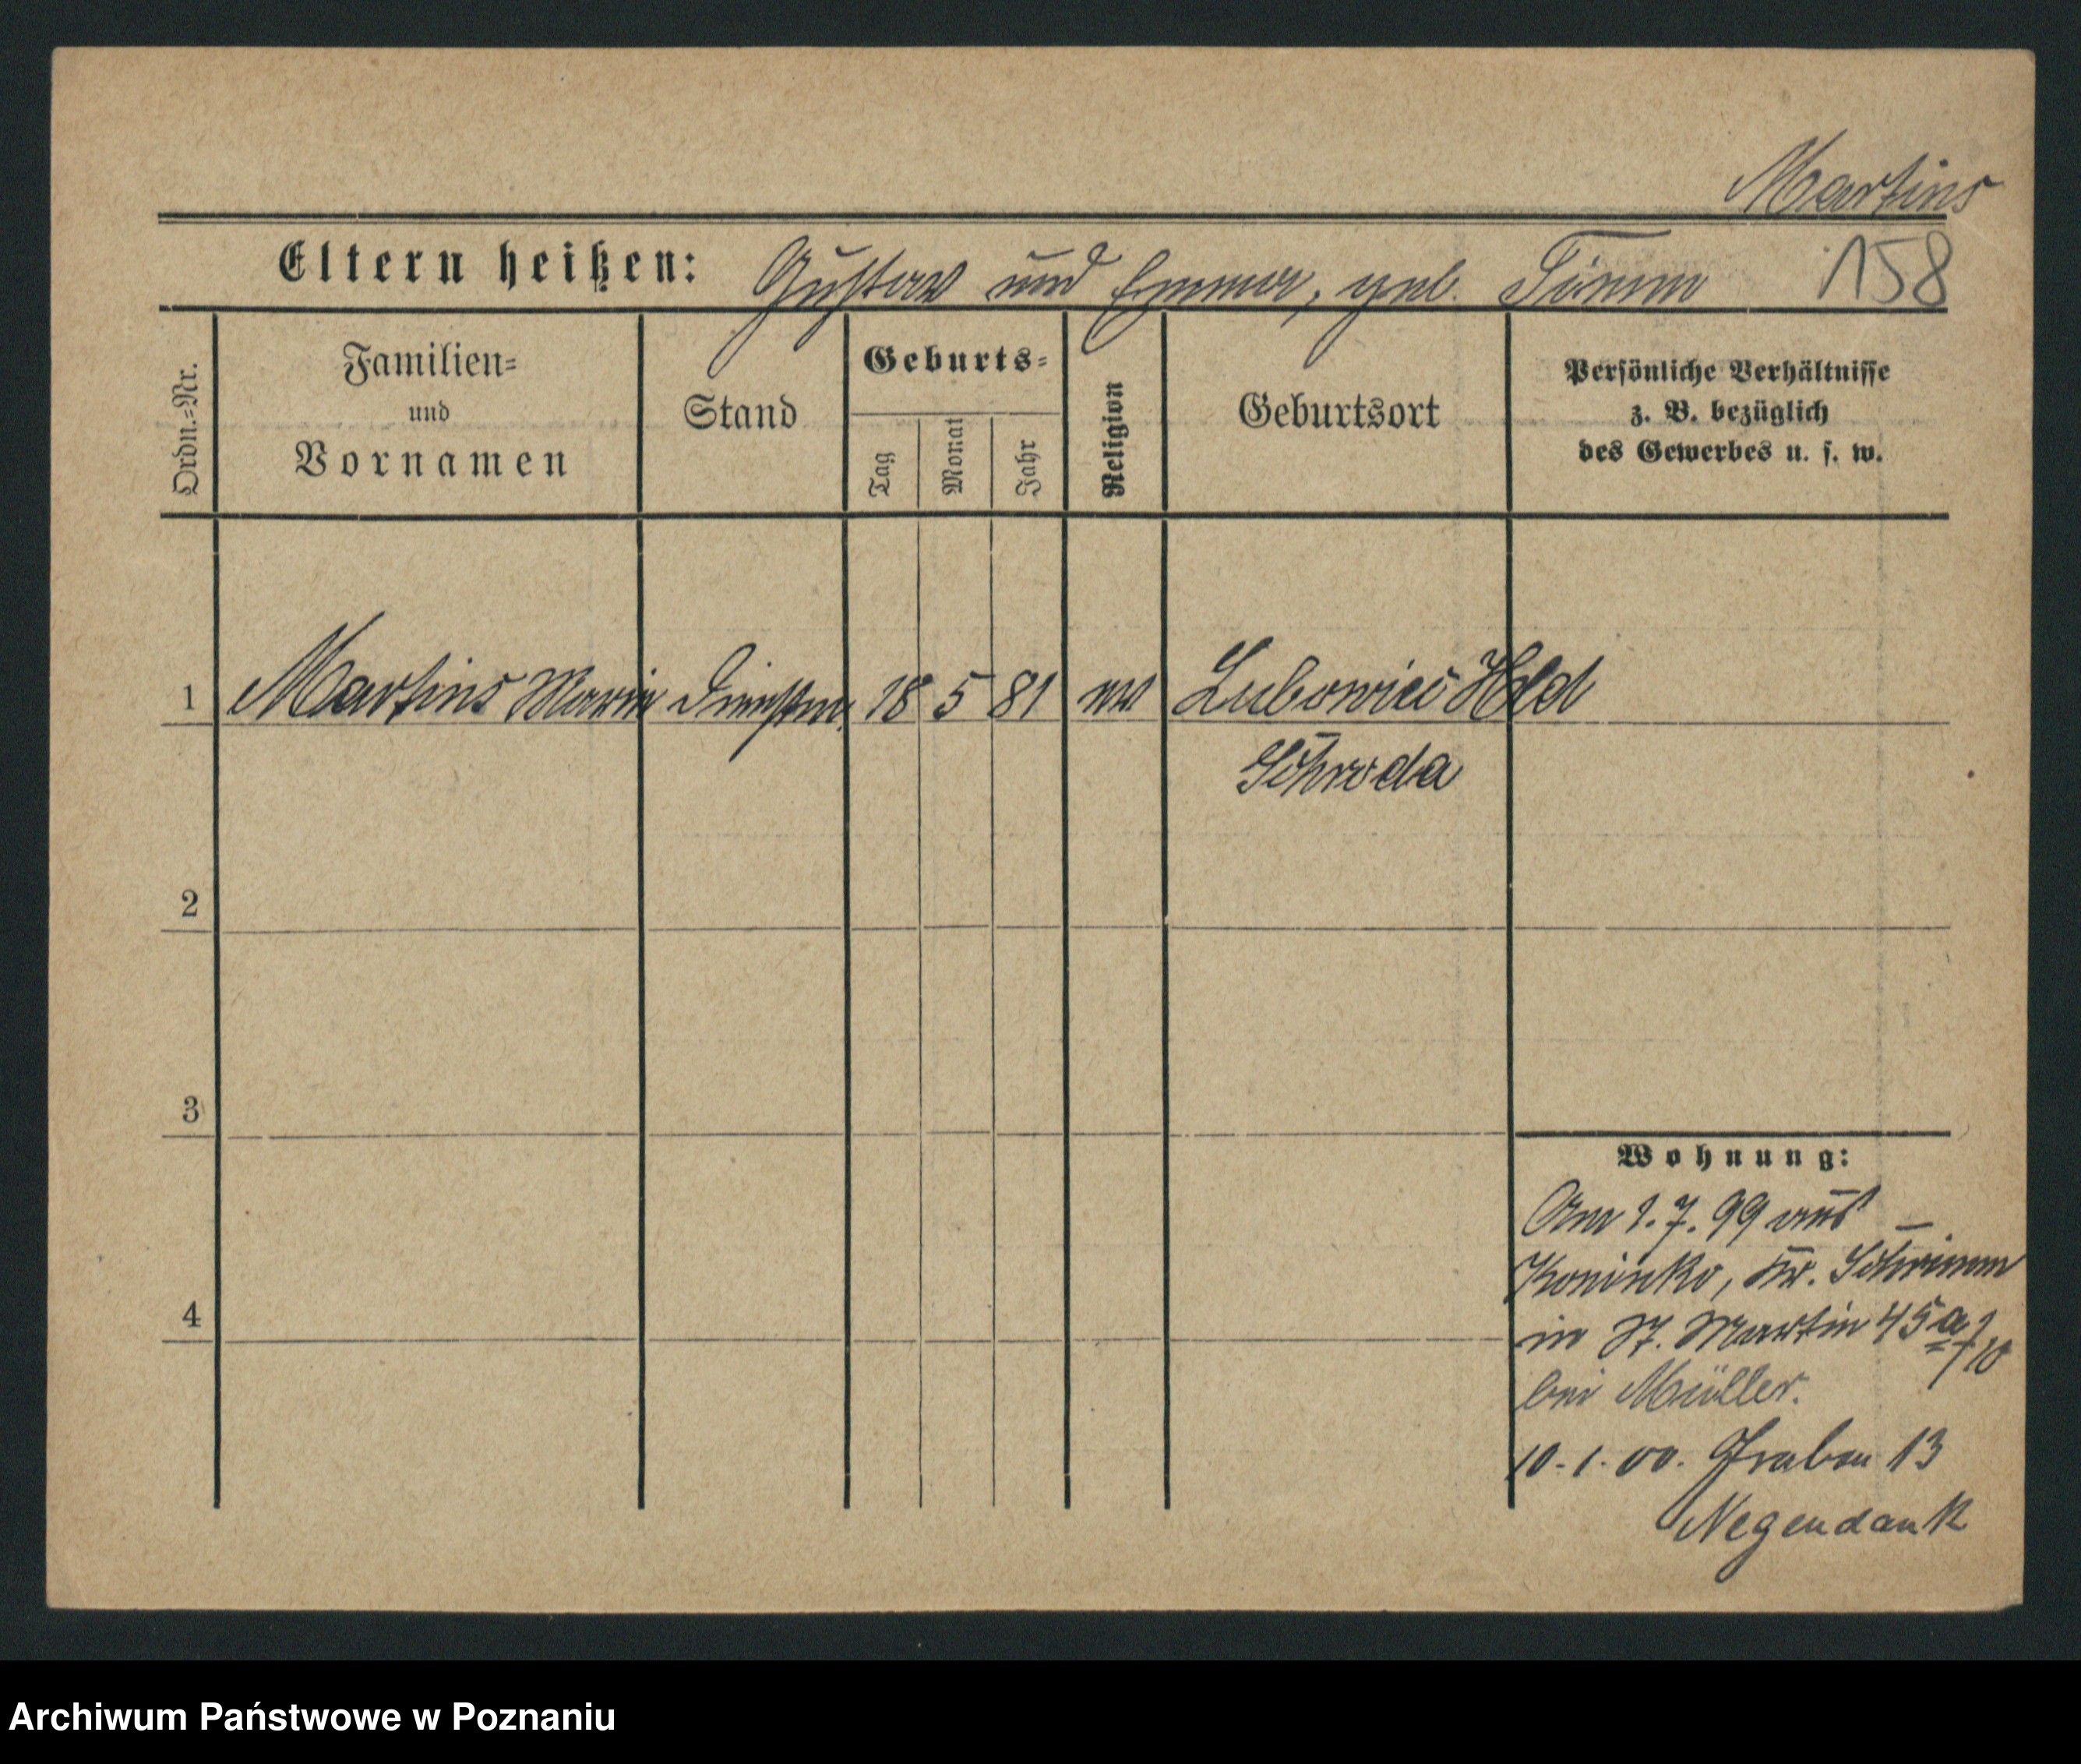 Martins
Eltern heißen: Gustav und Emma, geb. Timm 158
Ordn.=Nr.
Familien=
und
Vornamen
Stand
Geburts=
Tag
Monat
Jahr
Religion
Geburtsort
Persönliche Verhältnisse
z. B. bezüglich
des Gewerbes u. s. w.
1 Martins Marie Dienstm. 18 5 81 ev Hld
Schroda
2
3
4
Wohnung:
Am 1.7.99 aus
Koninko, Kr. Schrimm
in St. Martin 45a
bei Müller.
10.1.00. Graben 13
Negendank
Archiwum Państwowe w Poznaniu